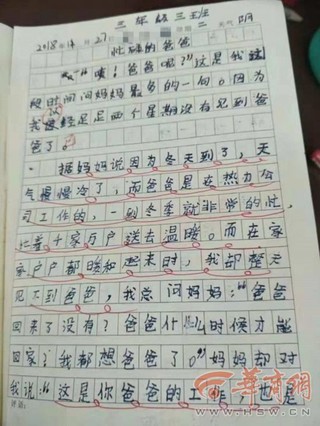 三年级三班
2018年 月27日 二 天气 阴
忙碌的爸爸
“唉！爸爸呢？”这是我这
段时间问妈妈最多的一句。因为
我已经足足两个星期没有见到爸
爸了。
据妈妈说因为冬天到了，天
气慢慢冷了，而爸爸是在热力公
司工作的，一到冬季就非常的忙，
忙着千家万户送去温暖。而在家
家户户都暖和起来时，我却整天
见不到爸爸，我总问妈妈：“爸爸
回来了没有？爸爸什么时候才能
回家？我都想爸爸了。”妈妈却对
我说：“这是你爸爸的工作，也是
华商网
WWW.HSW.CN